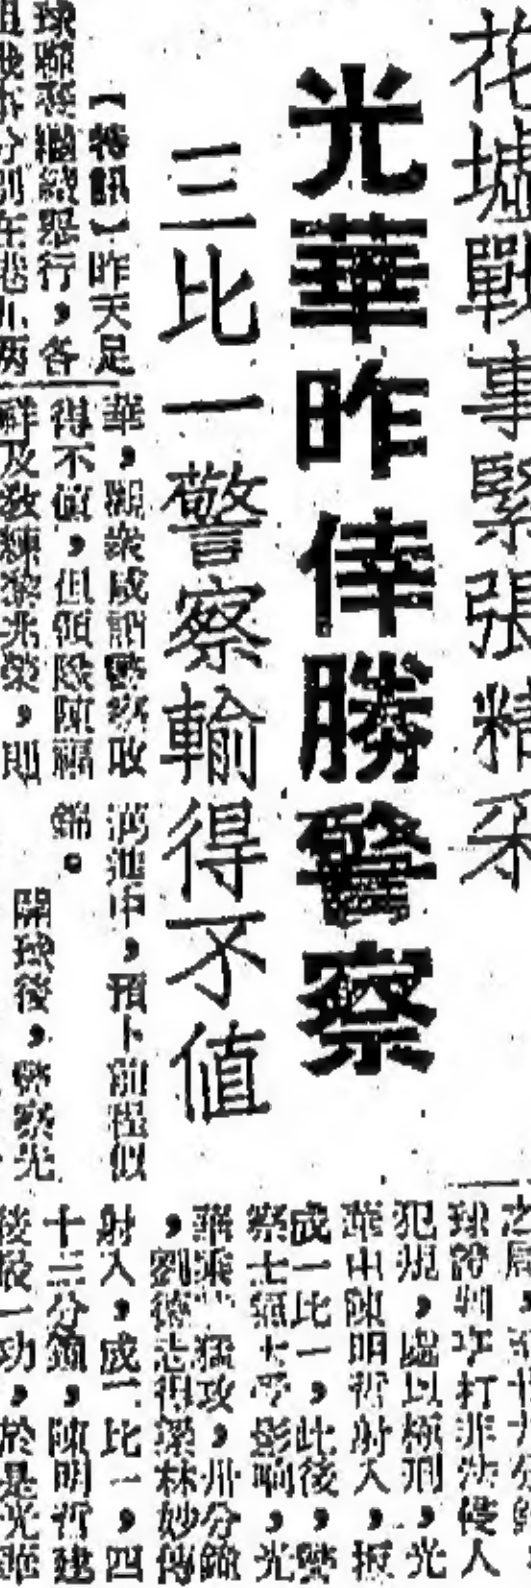 花墟戰事緊張精采
光華昨倖勝警察
三比一警察輸得不值
【特訊】昨天足
球聯賽繼續舉行，各
分別在港九兩
華，觀衆咸謂警察敗
得不值，但領隊陳福
祥及教練黎兆榮，則
滿池中，預卜前程似
錦。
開球後，警察先
球證判李打非法侵人
犯規，處以極刑，光
華由陳明哲射入，扳
成一比一，此後，警
察士氣大受影响，光
華乘猛攻，卅分鐘
，劉德志得梁林妙傳
射入，成二比一，四
十三分鐘，陳明哲建
後最一功，於是光華